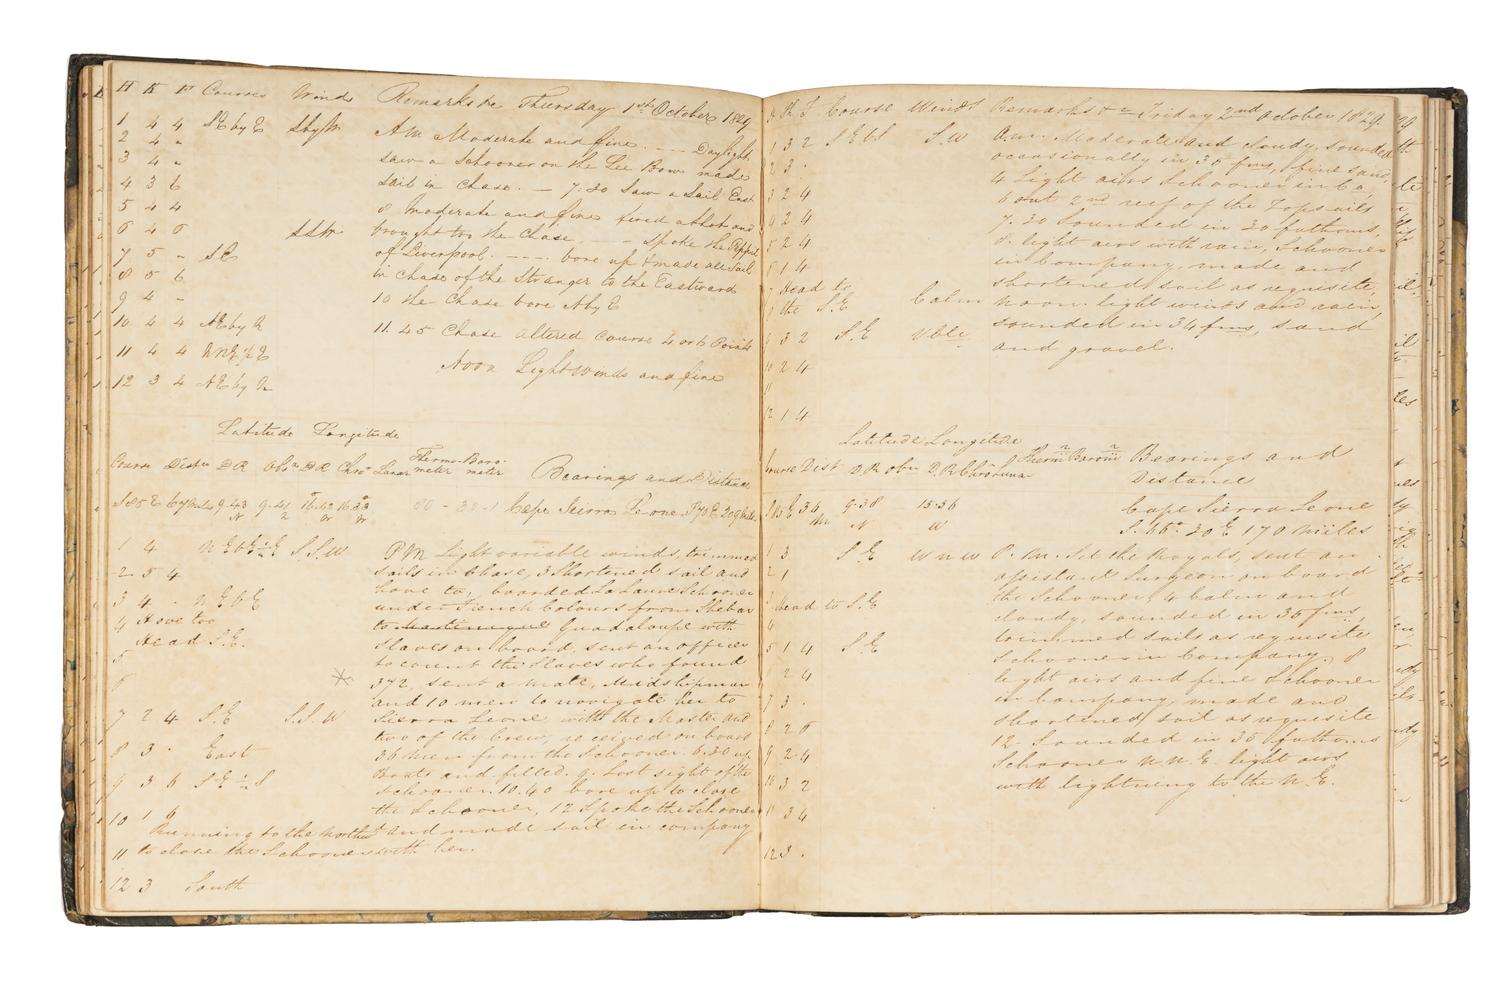 H K F Courses Winds Remarks &c Thursday 1st October 1829
1 4 4 SE by E SbyW AM Moderate and fine. -- Daylight
2 4 " saw a Schooner on the Lee Bow made
3 4 " sail in chase. - 7.30 Saw a Sail East
4 3 6
5 4 4 8 Moderate and fine fired a shot and
6 4 6 SSW brought too the Chase. -- Spoke the
7 5 " SE of Liverpool. ---- bore up & made all Sail
8 5 6 in Chase of the Stranger to the Eastward
9 4 " 10 the Chase bore NbyE
10 4 4 NE by N 11.45 Chase altered course 4 or 6 Points
11 4 4 NNE ½ E
12 3 4 NE by N Noon Light Winds and fine
Latitude Longitude
Course Distce DR Obsn DR Chro Lunar Thermo-meter Baro-meter Bearings and Distance
S85E 67 miles 9.43 N 9.41 N 16.12 W 16.33 W 80 - 30.1 Cape Sierra Leone S70E 209 miles
1 4 NEbE½E SSW PM Light variable winds, trimmed
2 5 4 sails in chase, 3 Shortened sail and
3 4 . NEbE hove to, boarded La Laure Schooner
4 Hove too under French Colours from Shebar
Head S.E. to Martinique Guadaloupe with
5 slaves on board, sent an officer
to count the slaves who found
6 372, sent a mate, Midshipman
and 10 men to navigate her to
7 2 4 S.E S.S.W Sierra Leone with the Master and
two of the crew, received on board
8 3 . East 36 men from the Schooner. 6.30 up
9 3 6 SE½S Boats and filled. 9. Lost sight of the
schooner. 10.40 bore up to close
10 1 6 the Schooner, 12 Spoke the Schooner
Running to the Northwd and made sail in company
11 to close the Schooner with her.
12 3 South
H K F Course Winds Remarks &c Friday 2nd October 1829.
1 3 2 SEbS S.W A.M. Moderate and cloudy, sounded
2 3 . occasionally in 35 fms, fine sand,
3 2 4 4 Light airs Schooner in Co
4 2 4 6 out 2nd reef of the Topsails
5 2 4 7.30 Sounded in 30 fathoms,
6 1 4 8. light airs with rain, Schooner
7 Head to in Company, made and
8 the S.E Calm shortened sail as requisite,
noon. light winds and rain,
9 3 2 S.E Vble sounded in 34 fms, sand
10 2 4 and gravel.
11
12 1 4
Latitude Longitude
Course Dist D.R obn D.R Chron Luna Thermr Baromr Bearings and
Distance
S15E 34 M 9.38 N 15.56 W Cape Sierra Leone
S. 66° 30 E 170 miles
1 3 S.E WNW P.M. Set the Royals, sent an
2 1 assistant Surgeon on board
3 Head to S.E the Schooner, 4 Calm and
4 cloudy, sounded in 35 fms,
5 1 4 S.E trimmed sails as requisite
Schooner in Company. 8
6 2 4 light airs and fine Schooner
7 3 . in Company, made and
8 2 6 shortened sail as requisite
9 2 4 12. Sounded in 35 fathoms
10 3 2 Schooner N.N.E. light airs
11 3 4 with lightning to the N.E.
12 3 .